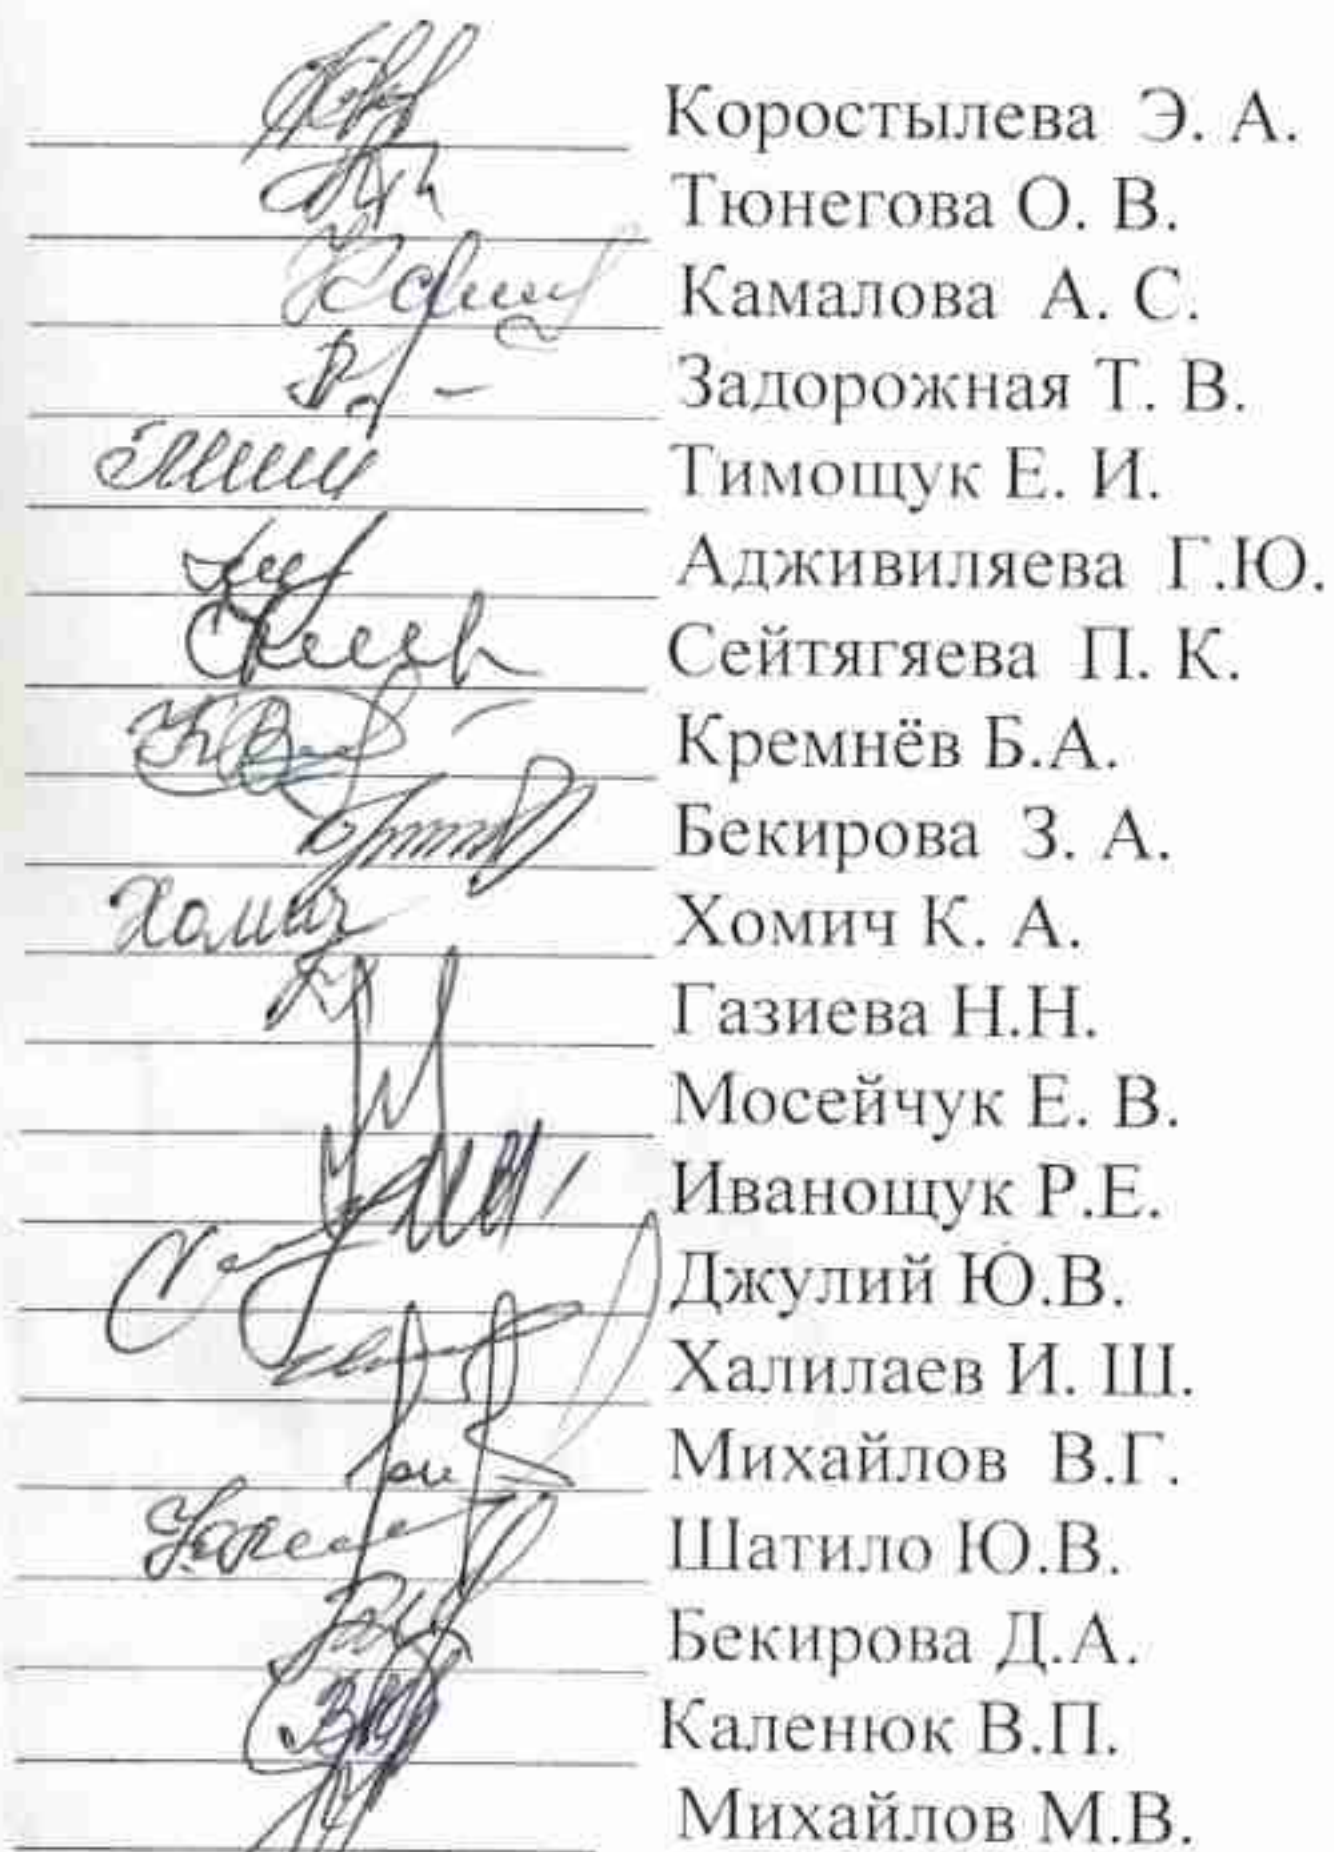 Коростылева Э. А.
Тюнегова О. В.
Камалова А. С.
Задорожная Т. В.
Тимощук Е. И.
Адживиляева Г.Ю.
Сейтягяева П. К.
Кремнёв Б.А.
Бекирова З. А.
Хомич Хомич К. А.
Газиева Н.Н.
Мосейчук Е. В.
Иванощук Р.Е.
Джулий Ю.В.
Халилаев И. Ш.
Михайлов В.Г.
Шатило Ю.В.
Бекирова Д.А.
Каленюк В.П.
Михайлов М.В.